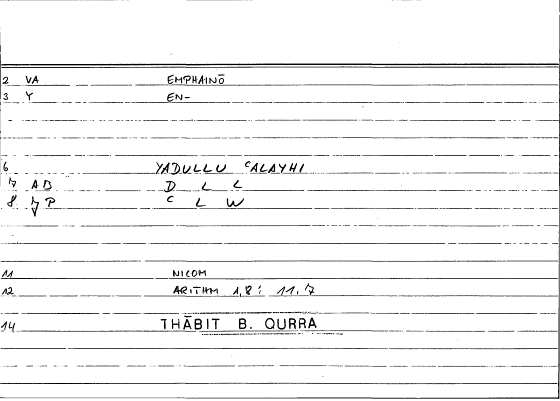 2 VA EMPHAINŌ
3 Y EN-
6 YADULLU ᶜALAYHI
7 AB D L L
8 P ᶜ L W
11 NICOM
12 ARITHM 1,8: 11.7
14 THĀBIT B. QURRA